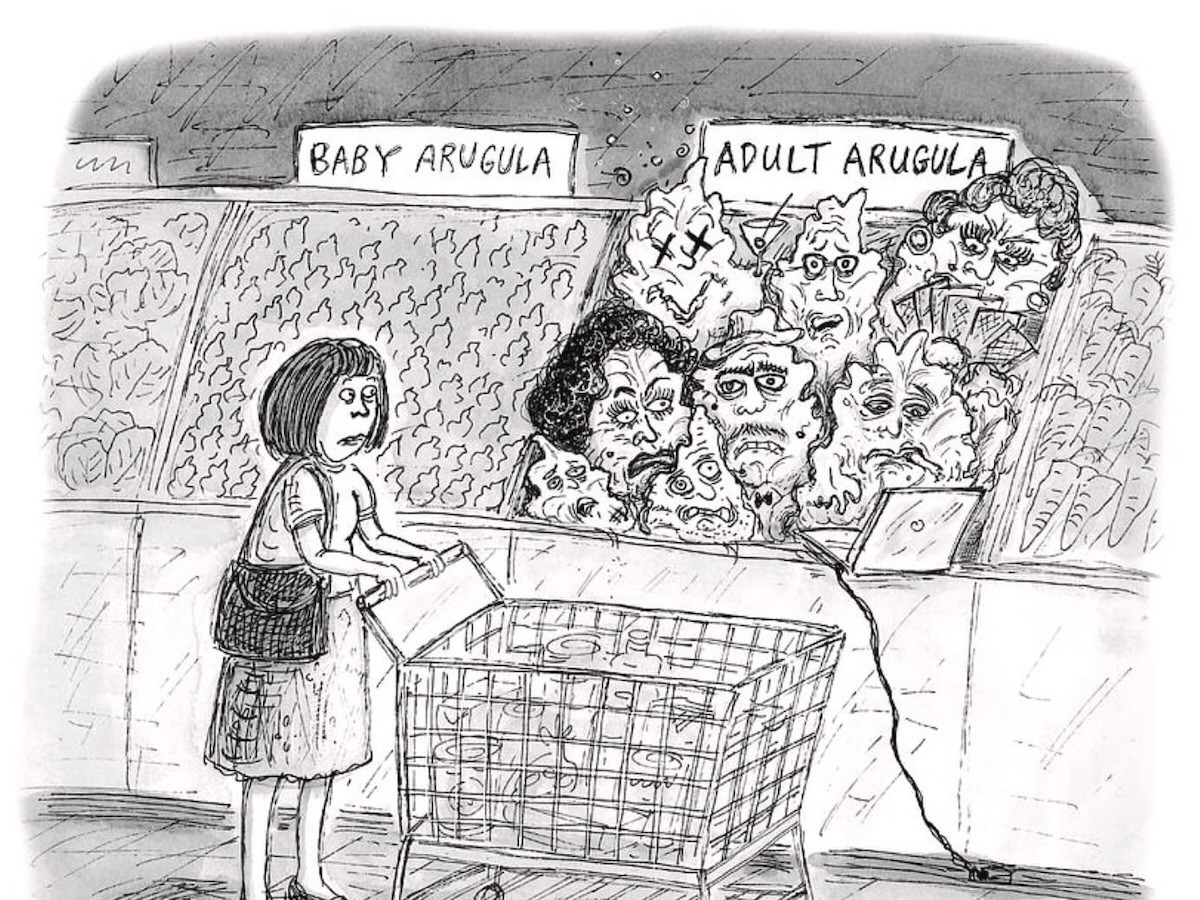 BABY ARUGULA
ADULT ARUGULA